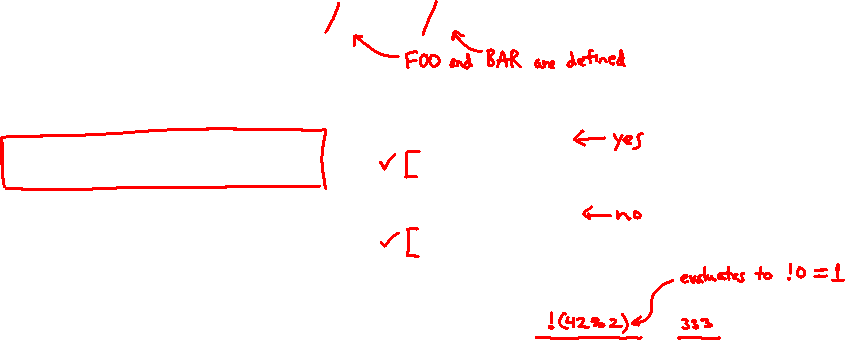 FOO and BAR are defined
← yes
✓ [
← no
✓ [
evaluates to !0 = 1
!(42%2) 333